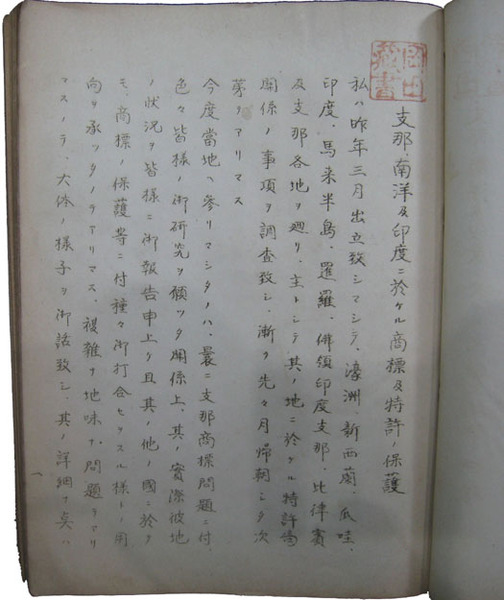 支那、南洋及印度ニ於ケル商標及特許ノ保護
私ハ昨年三月出立致シマシテ、濠洲、新西蘭、爪哇、
印度、馬来半島、暹羅、佛領印度支那、比律賓
及支那各地ヲ廻リ、主トシテ其ノ地ニ於ケル特許局
関係ノ事項ヲ調査致シ、漸ク先々月帰朝シタ次
第デアリマス
今度當地ヘ参リマシタノハ、曩ニ支那商標問題ニ付、
色々皆様ノ御研究ヲ願ッタ関係上、其ノ實際彼地
ノ状況ヲ皆様ニ御報告申上ゲ且其ノ他ノ國ニ於テ
モ、商標ノ保護等ニ付種々御打合セヲスル様トノ用
向ヲ承ッタノデアリマス、複雑ナ地味ナ問題デアリ
マスノデ、大体ノ様子ヲ御話致シ、其ノ詳細ナ点ハ
一
藏書